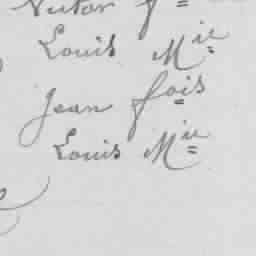 Victor f
Louis Mie
Jean fois
Louis Mie